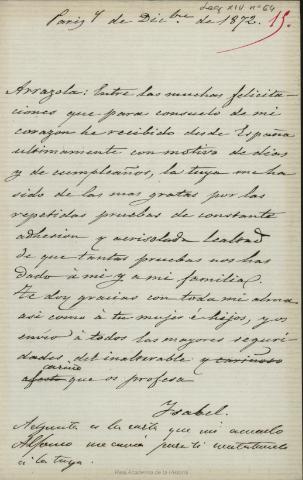 Leg XIV nº 64
Paris 4 de Dicbre de 1872.
15.
Arrazola: Entre las muchas felicita-
ciones que para consuelo de mi
corazon he recibido desde España
ultimamente con motivo de dias
y de cumpleaños, la tuya me ha
sido de las mas gratas por las
repetidas pruebas de constante
adhesion y acrisolada lealtad
de que tantas pruebas nos has
dado á mi y a mi familia.
Te doy gracias con toda mi alma
asi como á tu mujer é hijos, y os
envio á todos las mayores seguri-
dades del inalterable y cariñoso
cariño
afecto que os profesa
Isabel.
Adjunta es la carta que mi
Alfonso me envia para ti
á la tuya.
Real Academia de la Historia